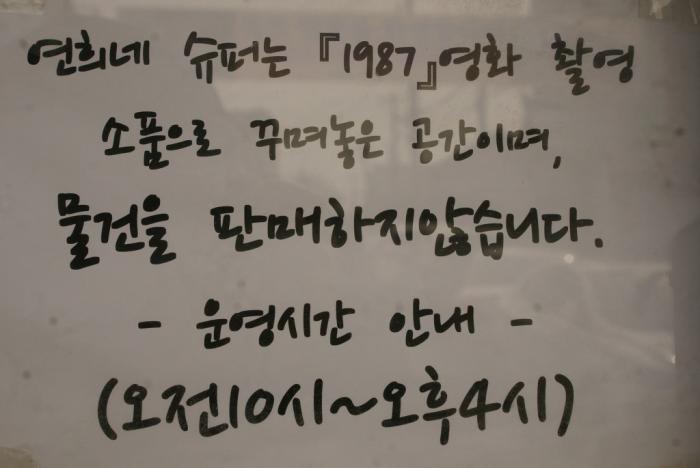 연희네 슈퍼는 『1987』영화 촬영
소품으로 꾸며놓은 공간이며,
물건을 판매하지않습니다.
- 운영시간 안내 -
(오전10시~오후4시)